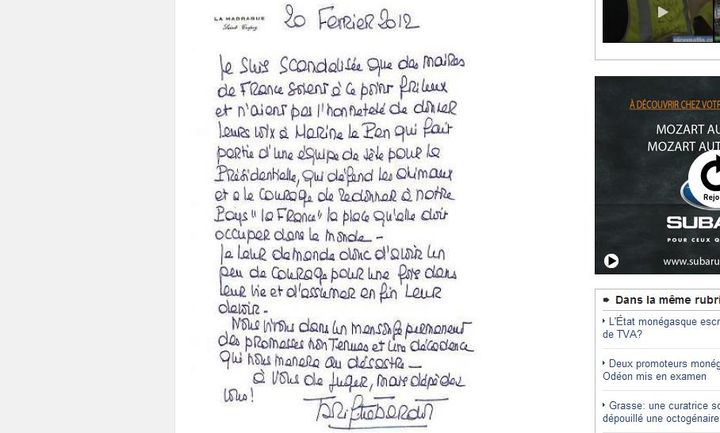 LA MADRAGUE
Saint Tropez
20 Février 2012
Je suis scandalisée que des maires
de France soient à ce point frileux
et n'aient pas l'honneteté de donner
leurs voix à Marine le Pen qui fait
partie d'une équipe de tête pour la
Présidentielle, qui défend les animaux
et a le courage de redonner à notre
Pays "la France" la place qu'elle doit
occuper dans le monde -
Je leur demande donc d'avoir un
peu de courage pour une fois dans
leur vie et d'assumer en fin leur
devoir -
Nous vivons dans un mensonge permanent
des promesses non tenues et une décadence
qui nous menera au désastre -
à vous de juger, mais dépêchez
vous!
À DÉCOUVRIR CHEZ VOTR
MOZART AUT
MOZART AUT
Rejo
SUBA
POUR CEUX Q
www.subaru
Dans la même rubri
L'État monégasque escr
de TVA?
Deux promoteurs monég
Odéon mis en examen
Grasse: une curatrice so
dépouillé un octogénaire